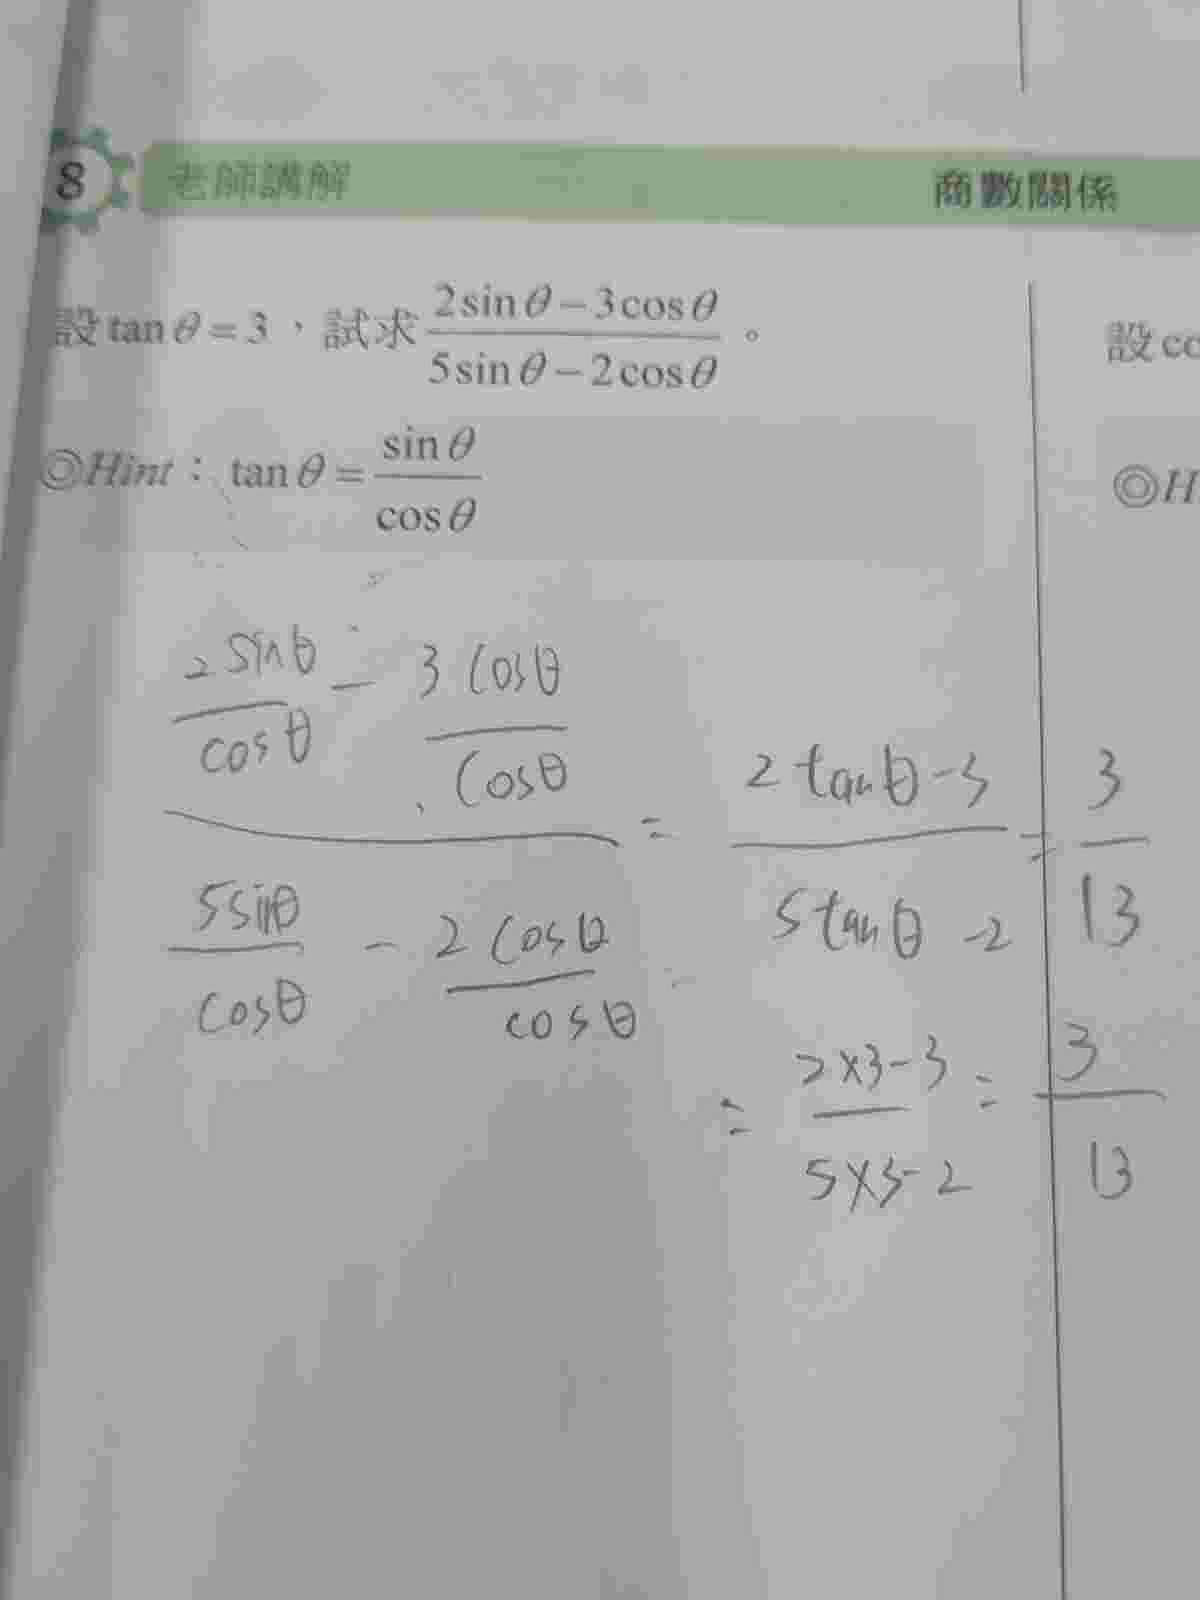 8 老師講解 商數關係
設 tan θ = 3,試求 (2 sin θ − 3 cos θ)/(5 sin θ − 2 cos θ)。
設 co
◎Hint: tan θ = sin θ/cos θ
◎H
(2 sinθ/cosθ − 3 cosθ/cosθ)/(5 sinθ/cosθ − 2 cosθ/cosθ) = (2 tanθ − 3)/(5 tanθ − 2) = 3/13
= (2×3−3)/(5×3−2) = 3/13